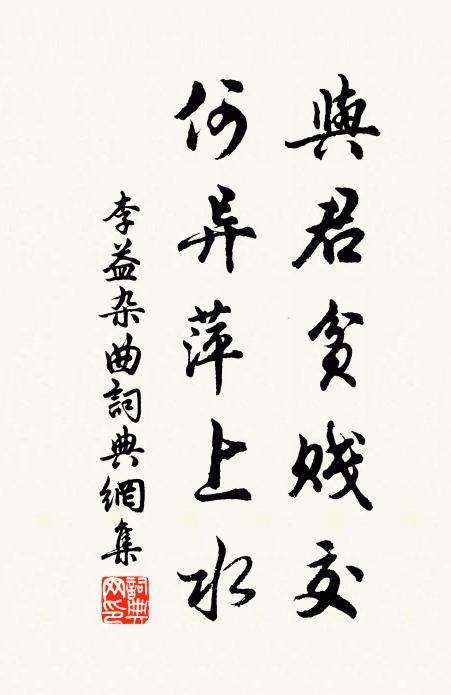 與君贫贱交
何异萍上水
李益杂曲詞典網集
詞典网印